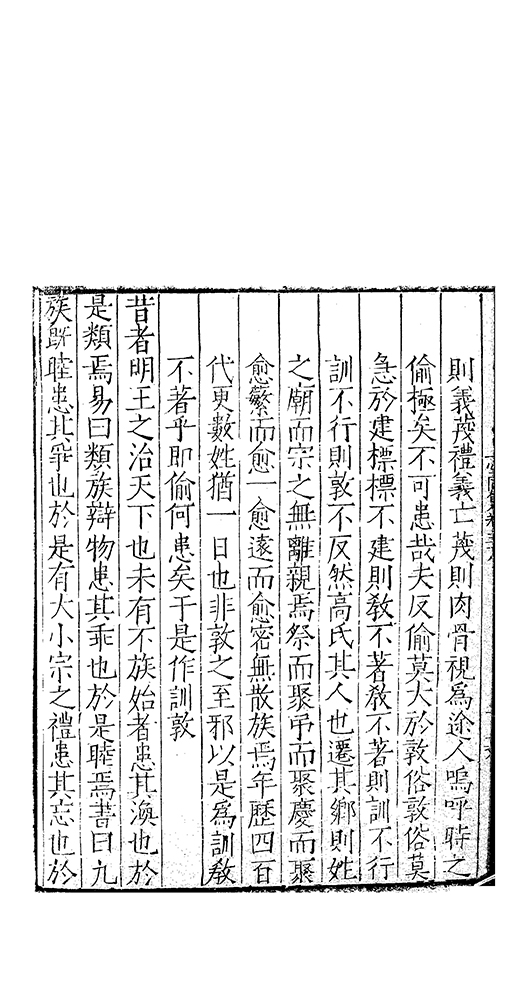 則義蔑禮義亡蔑則肉骨視爲途人嗚呼時之
偷極矣不可患哉夫反偷莫大於敦俗敦俗莫
急於建標標不建則敎不著敎不著則訓不行
訓不行則敦不反然高氏其人也遷其鄉則姓
之廟而宗之無離親焉祭而聚弔而聚慶而聚
愈繁而愈一愈遠而愈密無散族焉年歷四百
代更數姓猶一日也非敦之至邪以是爲訓敎
不著乎即偷何患矣于是作訓敦
昔者明王之治天下也未有不族始者患其渙也於
是類焉易曰類族辯物患其乖也於是睦焉書曰九
族旣睦患其睾也於是有大小宗之禮患其忘也於